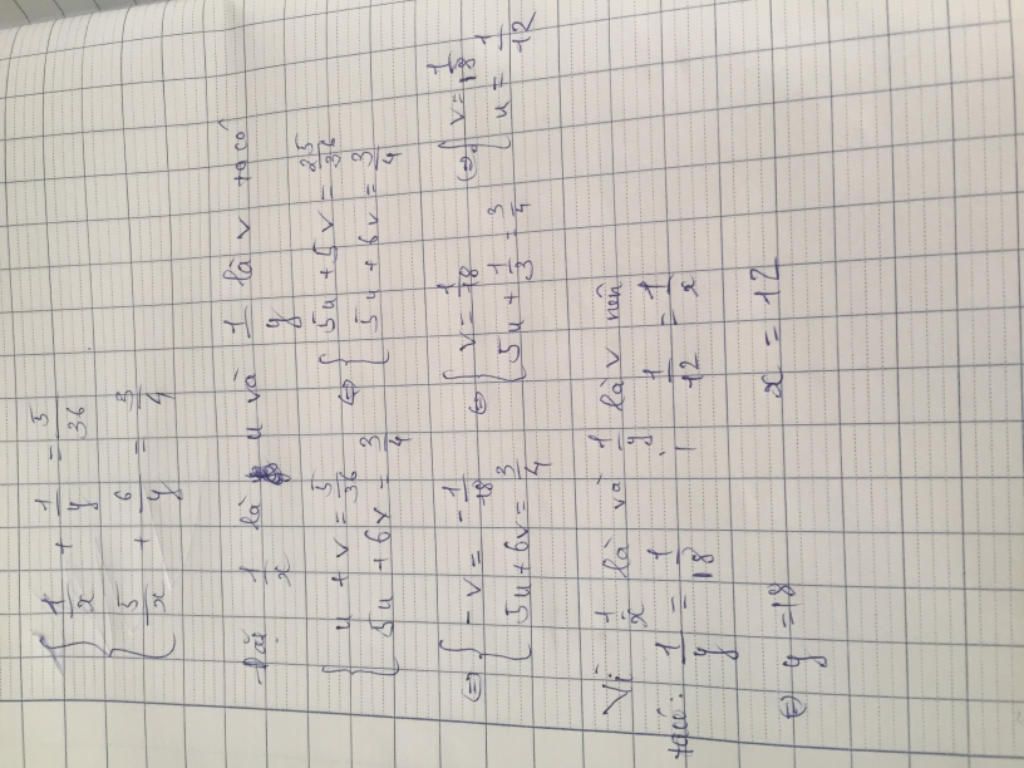 { 1/x + 1/y = 5/36
{ 5/x + 6/y = 3/4
Đặt 1/x là u và 1/y là v ta có
{ u + v = 5/36 ⇔ { 5u + 5v = 25/36
{ 5u + 6v = 3/4 { 5u + 6v = 3/4
⇔ { - v = - 1/18 ⇔ { v = 1/18 ⇔ { v = 1/18
{ 5u + 6v = 3/4 { 5u + 1/3 = 3/4 { u = 1/12
Vì 1/x là và 1/y là v nên
ta có: 1/y = 1/18 1/12 = 1/x
⇔ y = 18 x = 12